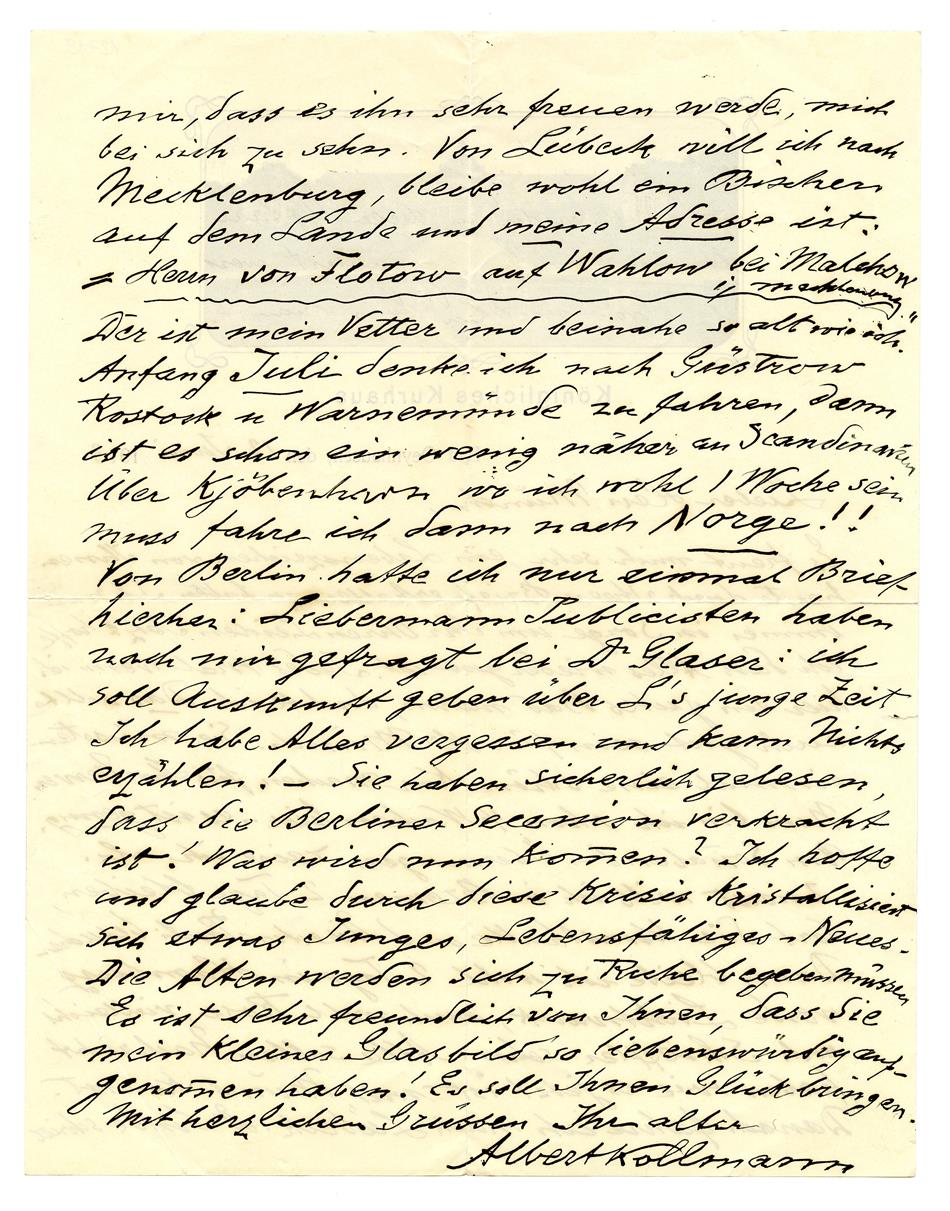 mir, dass es ihn sehr freuen werde, mich
bei sich zu sehn. Von Lübeck will ich nach
Mecklenburg, bleibe wohl ein Bischen
auf dem Lande und meine Adresse ist:
= Herrn von Flotow auf Wahlow bei Malchow
i/ Mecklenburg"
Der ist mein Vetter und beinahe so alt wie ich.
Anfang Juli denke ich nach Güstrow
Rostock u Warnemünde zu fahren, dann
ist es schon ein wenig näher an Scandinavien
Über Kjöbenhavn wo ich wohl 1 Woche sein
muss fahre ich dann nach Norge!!
Von Berlin hatte ich nur einmal Brief
hierher: Liebermann Publicisten haben
nach mir gefragt bei Dr Glaser: ich
soll Auskunft geben über L's junge Zeit
Ich habe Alles vergessen und kann Nichts
erzählen! – Sie haben sicherlich gelesen,
dass die Berliner Secession verkracht
ist! Was wird nun kom̄en? Ich hoffe
und glaube durch diese Krisis Kristallisiert
sich etwas Junges, Lebensfähiges - Neues.
Die Alten werden sich zu Ruhe begeben müssen
Es ist sehr freundlich von Ihnen, dass Sie
mein kleines Glasbild so liebenswürdig auf-
genom̄en haben! Es soll Ihnen Glück bringen.
Mit herzlichen Grüssen Ihr alter
Albert Kollmann
Königliches Kurhaus